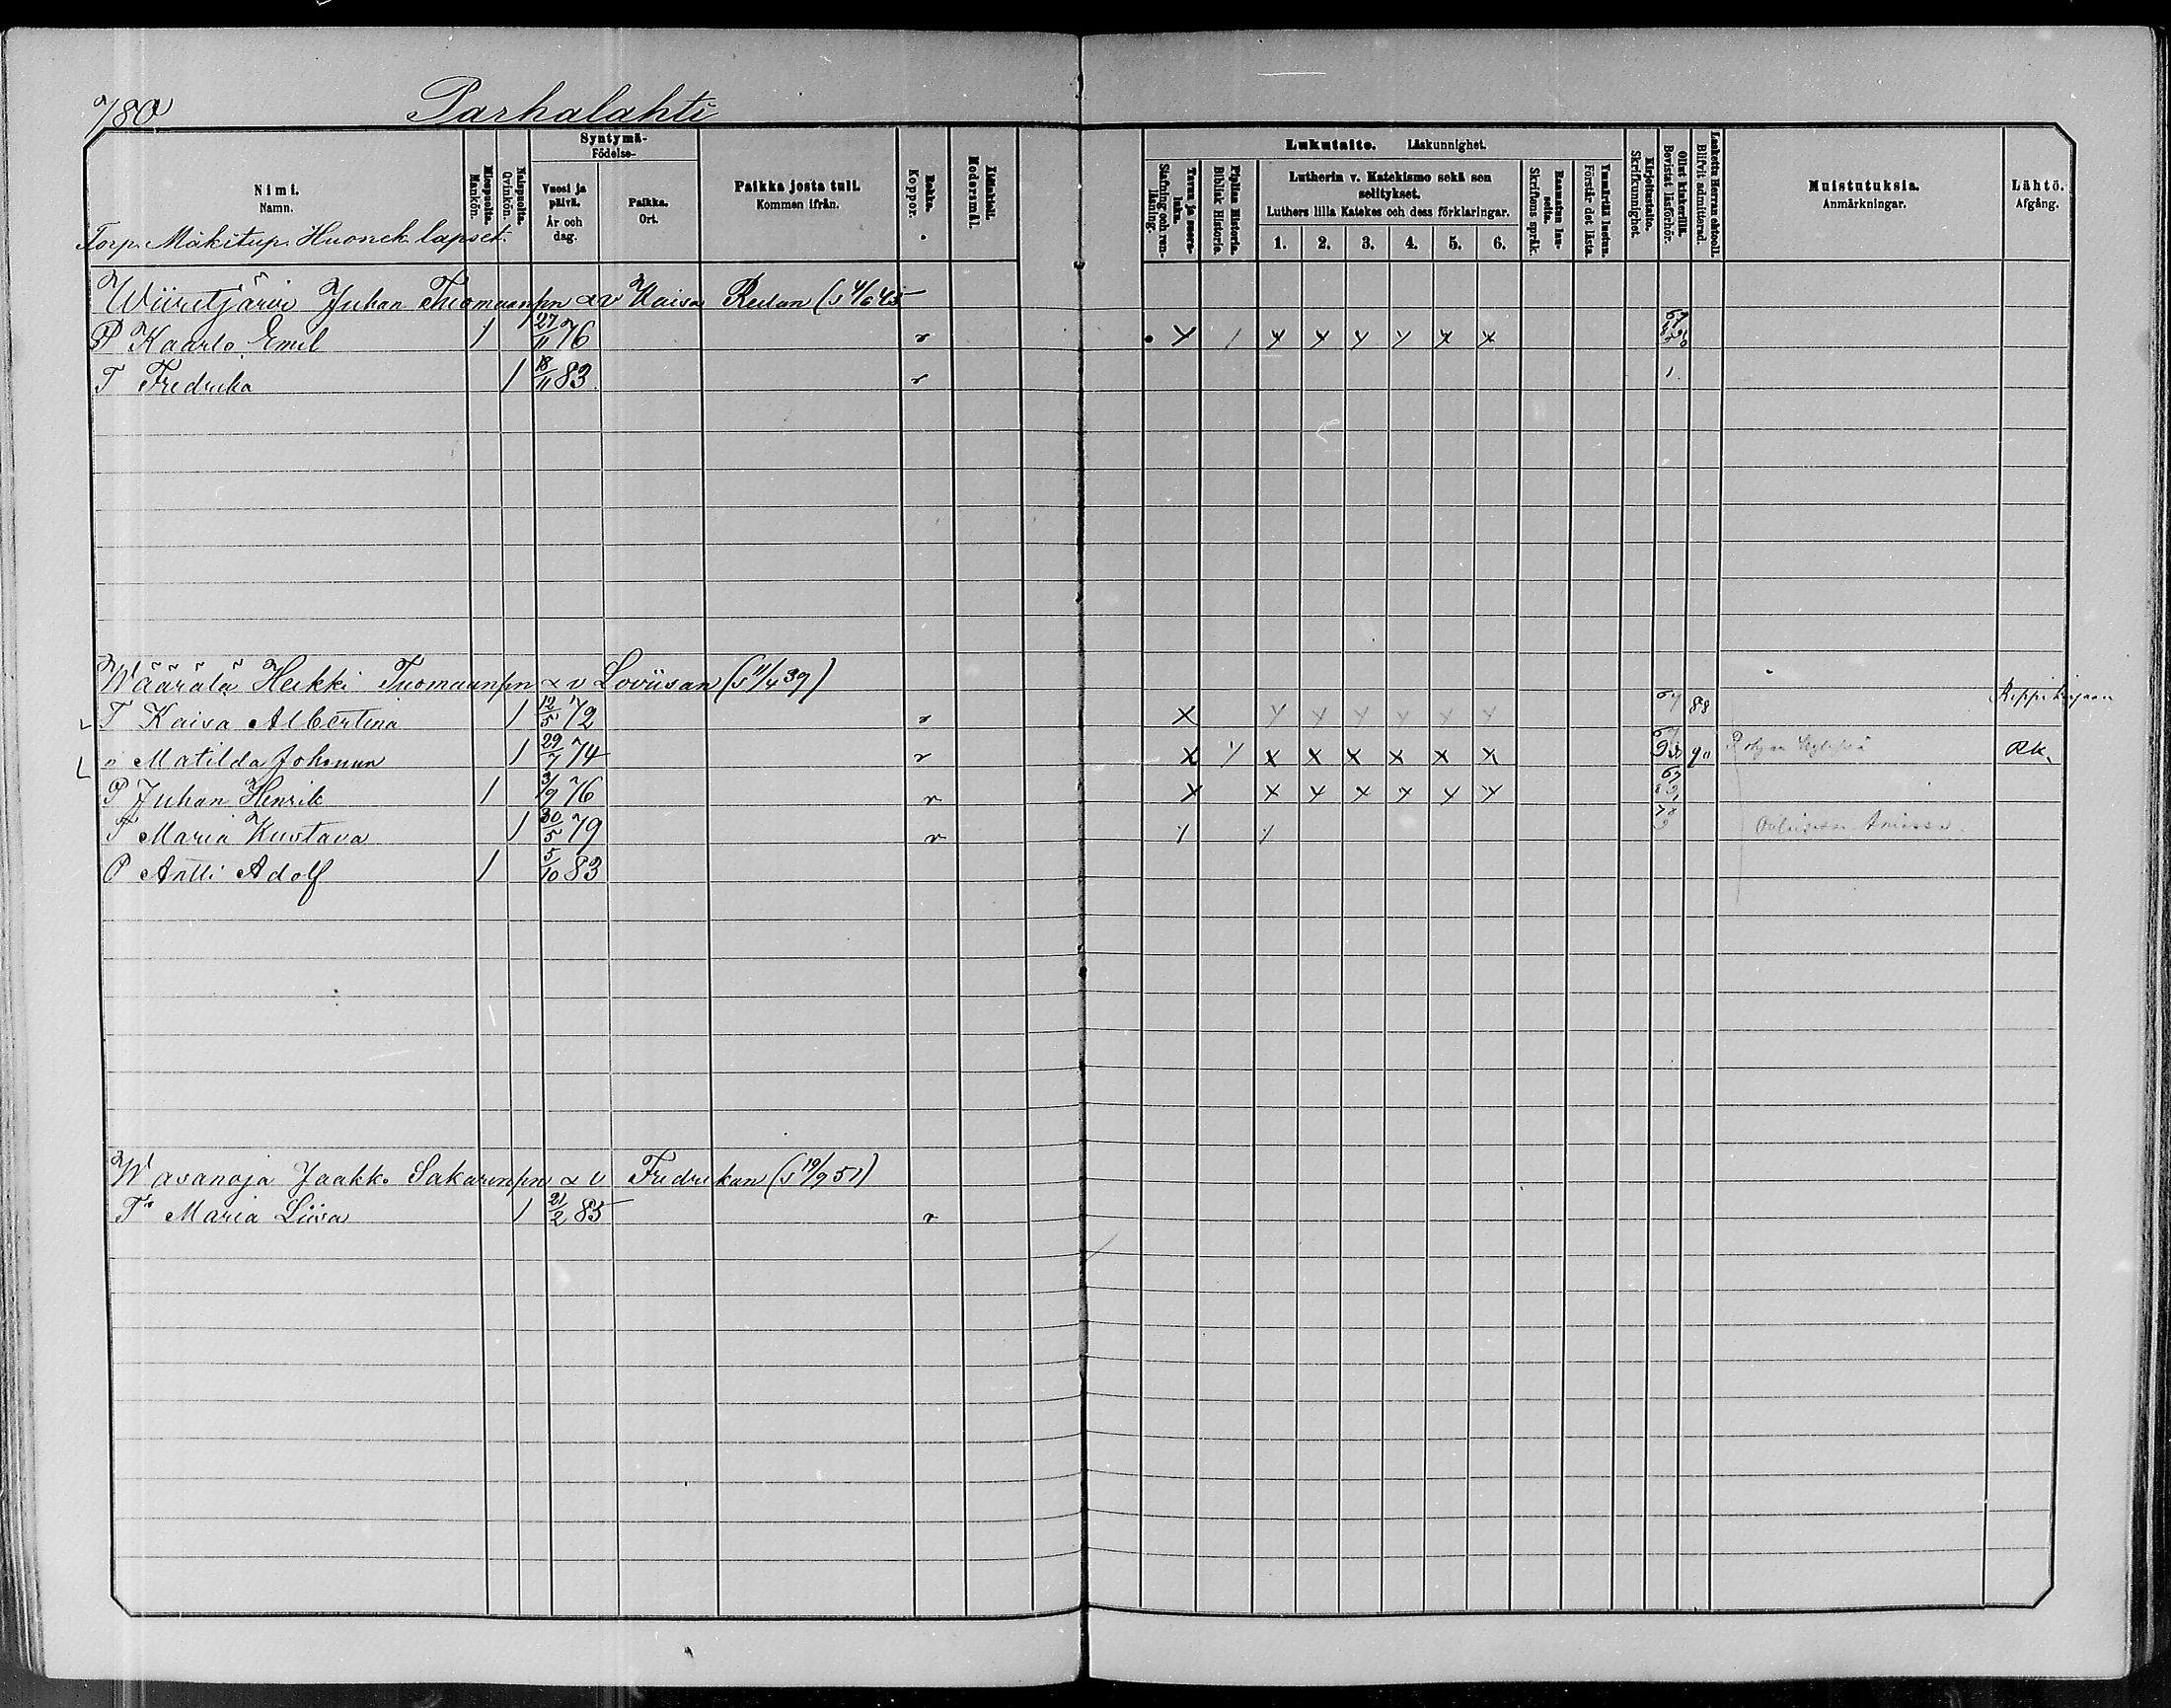 780 Parhalahti
Nimi.
Namn.
Torp. Mäkitup. Huonek. lapset.
Miespuolta.
Mankön.
Naispuolta.
Qvinkön.
Syntymä-
Födelse-
Vuosi ja päivä.
År och dag.
Paikka.
Ort.
Paikka josta tuli.
Kommen ifrån.
Rokko.
Koppor.
Äidinkieli.
Modersmål.
Lukutaito. Läskunnighet.
Tavu ja suora-luku.
Stafning och ren-läsning.
Piplian Historia.
Biblisk Historia.
Lutherin v. Katekismo sekä sen selitykset.
Luthers lilla Katekes och dess förklaringar.
1. 2. 3. 4. 5. 6.
Raamatun lau-seita.
Skriftens språk.
Ymmärtää luetun.
Förstår det lästa.
Kirjoitustaito.
Skrifkunnighet.
Ollut kinkerillä.
Bevistat läsförhör.
Laskettu Herran ehtool.
Blifvit admitterad.
Muistutuksia.
Anmärkningar.
Lähtö.
Afgång.
Juhan Tuomaanpn & v Kaisa (s 4/6 45
P Kaarlo Emil 1 27/11 76 r x / x x x x x x
T Fredrika 1 18/11 83 r 1
Määrälä Heikki Tuomaanpn & v Loviisan (s 11/4 39)
T Kaisa Albertina 1 12/5 72 r x x x x x x x 88 Rippikirjaan
" Matilda Johanna 1 29/7 74 r x / x x x x x x 90 RK.
P Juhan Henrik 1 76 r x x x x x x x
T Maria Kustava 1 30/5 79 r / /
P Antti Adolf 1 5/10 83
Wasanoja Jaakko Sakarinpn & v Fredrikan (s 19/9 51)
T Maria Liisa 1 21/2 85 r